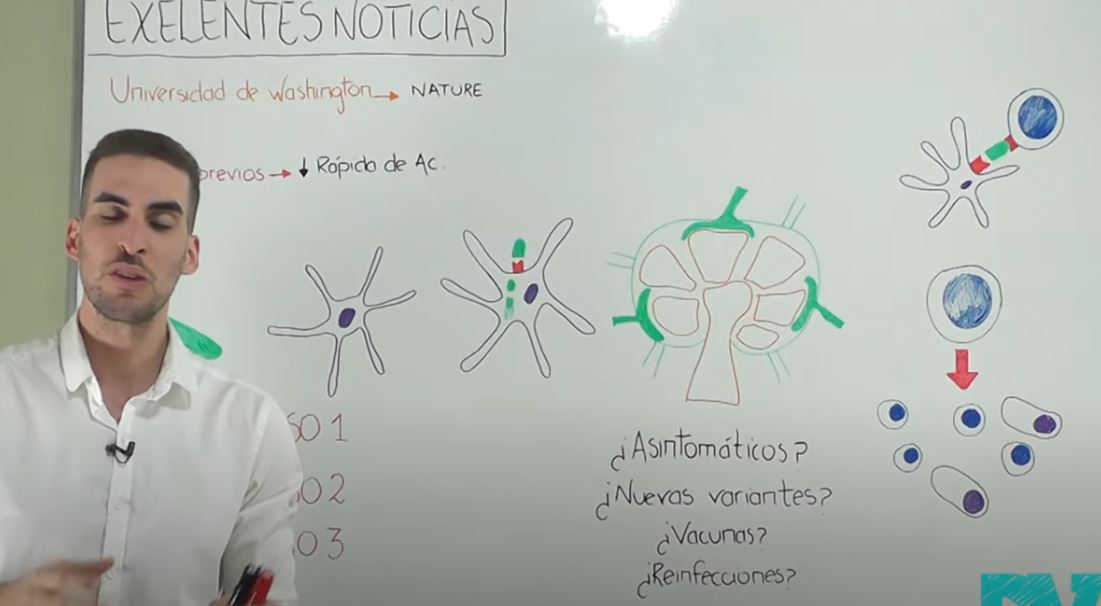 EXELENTES NOTICIAS
Universidad de Washington → NATURE
previos → ↓ Rápido de Ac.
SO 1
SO 2
SO 3
¿Asintomáticos?
¿Nuevas variantes?
¿Vacunas?
¿Reinfecciones?